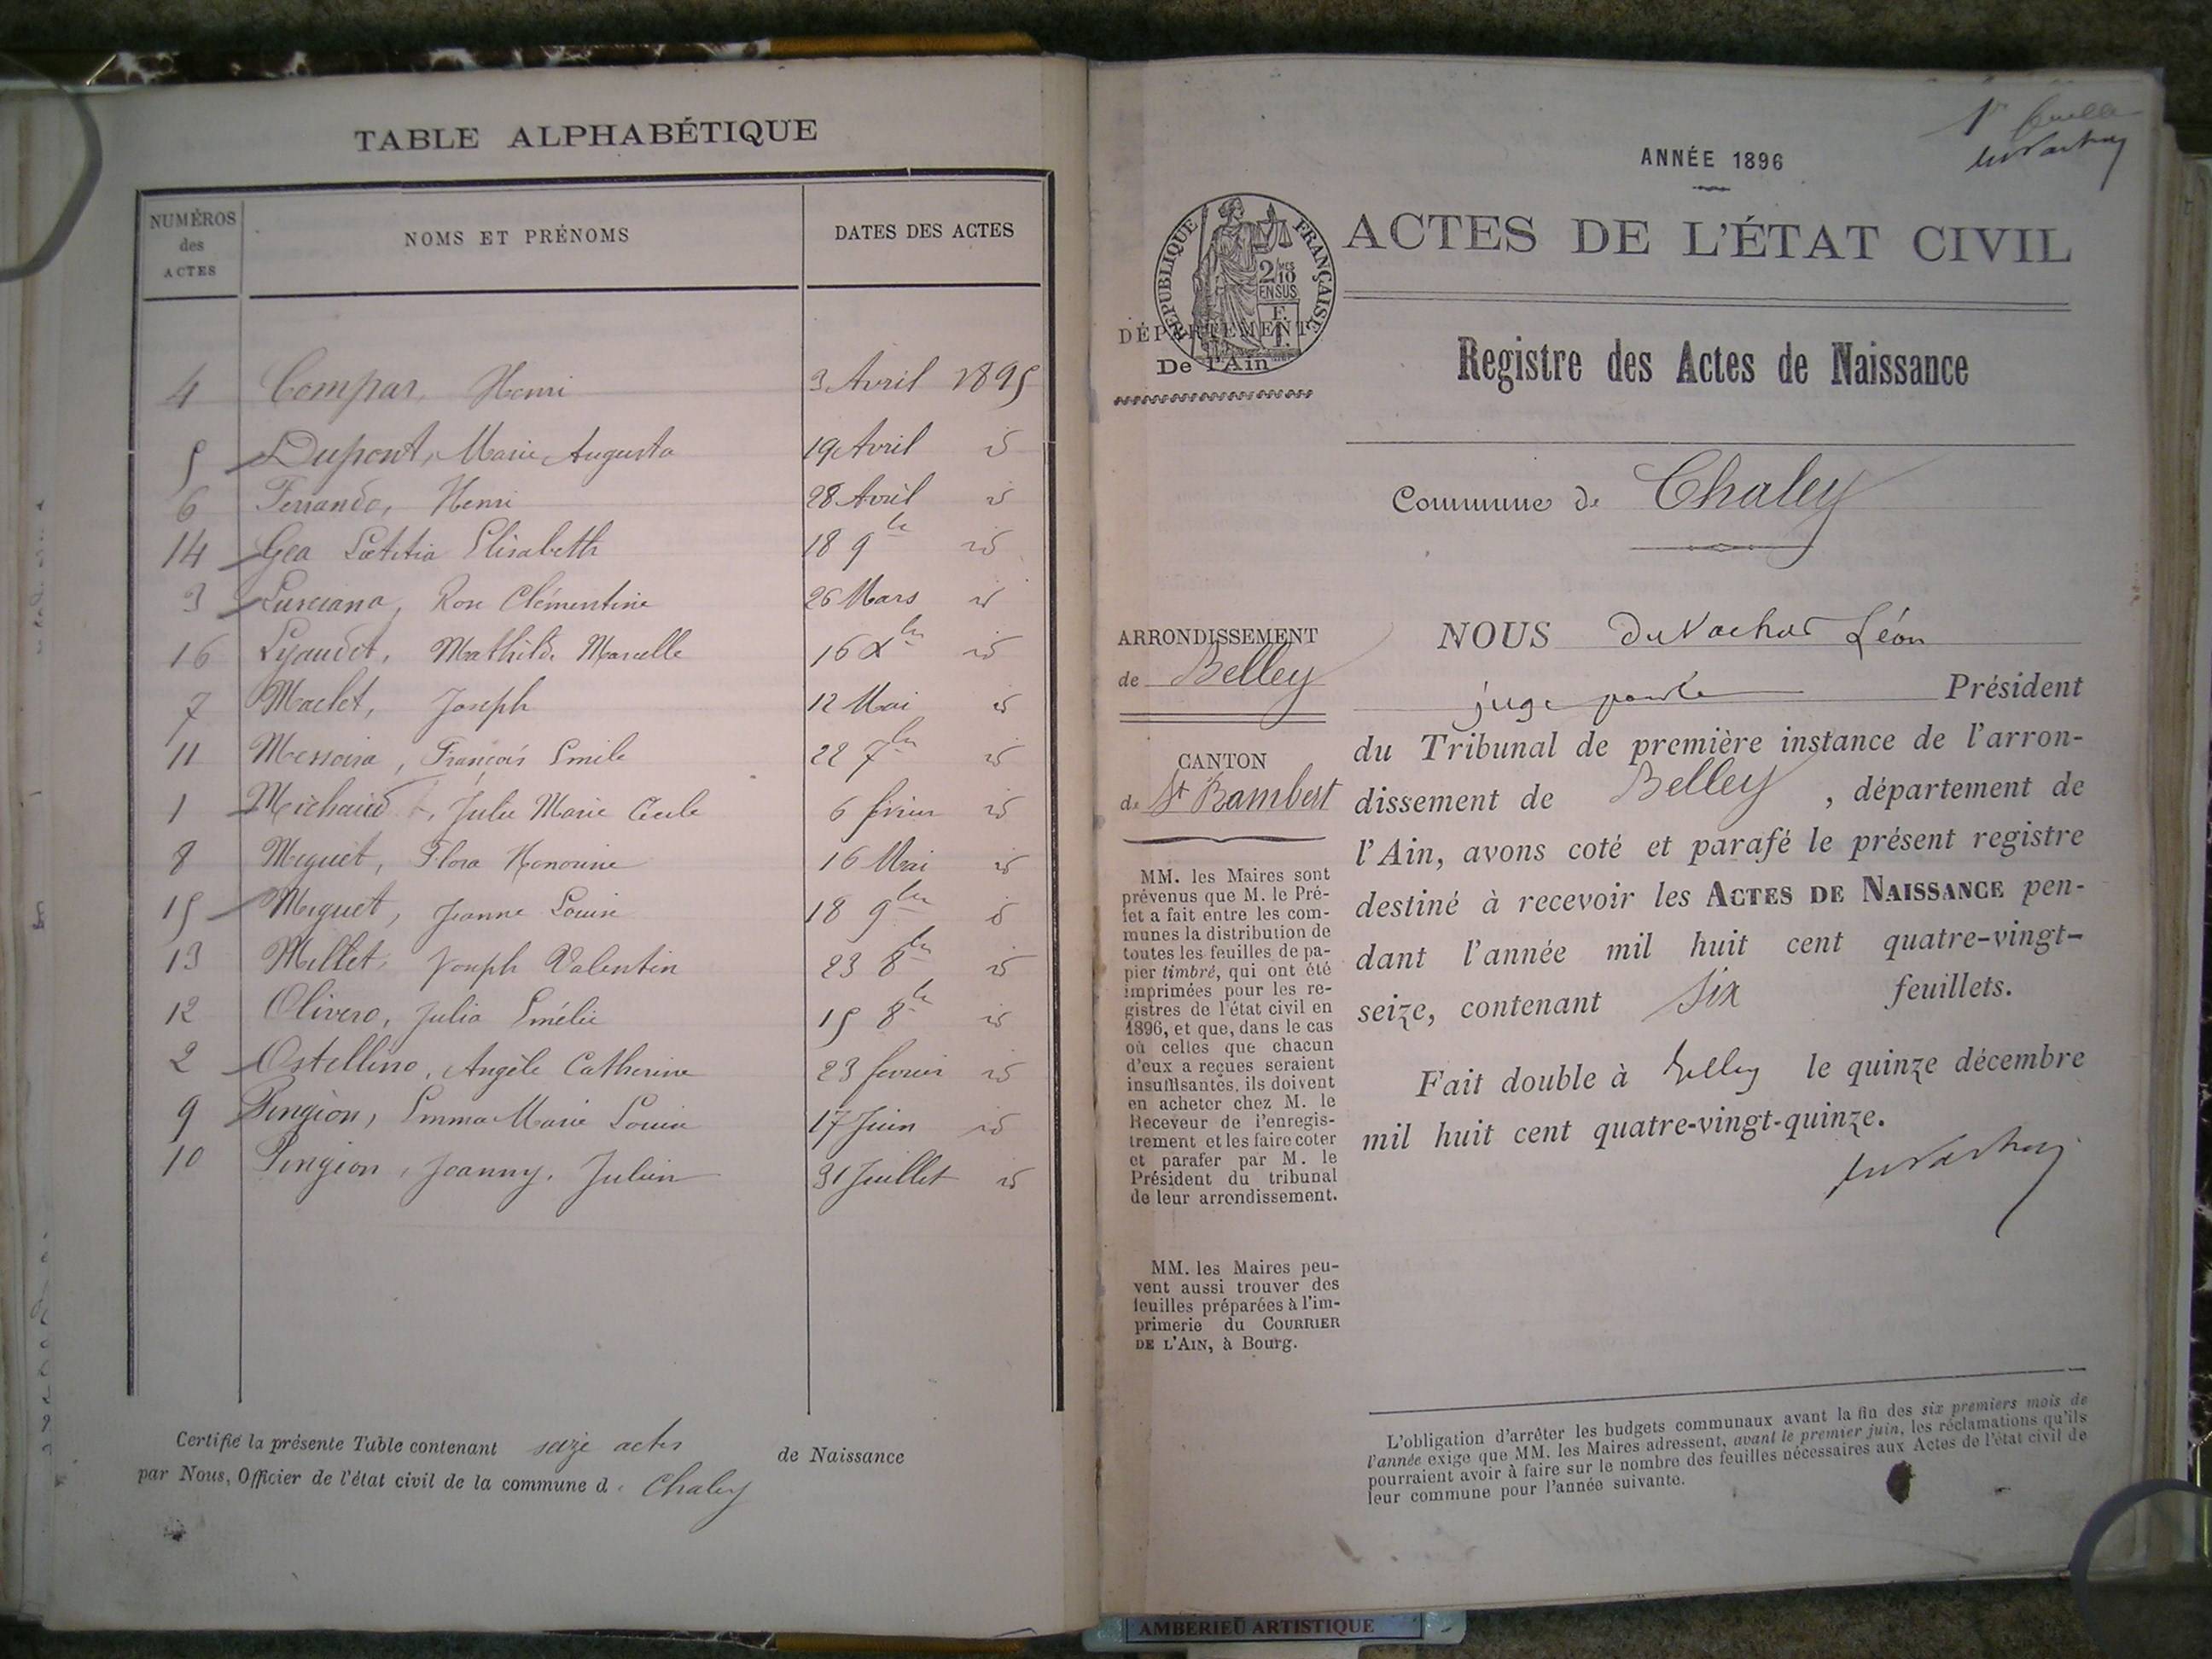 TABLE ALPHABÉTIQUE
NUMÉROS des ACTES NOMS ET PRÉNOMS DATES DES ACTES
4 Compar, Henri 3 Avril 1895
5 Dupont, Marie Augusta 19 Avril id
6 Ferrando, Henri 28 Avril id
14 Gea Lœtitia Elisabeth 18 9bre id
3 Rose Clémentine 26 Mars id
16 Lyaudet, Mathilde Marcelle 16 Xbre id
7 Maclet, Joseph 12 Mai id
11 François Emile 22 7bre id
1 Michaud Julie Marie Cécile 6 février id
8 Miguet, Flora Honorine 16 Mai id
15 Miguet, Jeanne Louise 18 9bre id
13 Millet, Joseph Valentin 23 8bre id
12 Olivero, Julia Emélie 15 8bre id
2 Ostellino, Angèle Catherine 23 février id
9 Pingeon, Emma Marie Louise 17 Juin id
10 Pingeon, Joanny, Julien 31 Juillet id
Certifié la présente Table contenant seize actes de Naissance
par Nous, Officier de l'état civil de la commune d. Chaley
1er feuillet
ANNÉE 1896
RÉPUBLIQUE FRANÇAISE
2/10 MES
EN SUS
ACTES DE L'ÉTAT CIVIL
DÉPARTEMENT
De l'Ain
Registre des Actes de Naissance
Commune de Chaley
ARRONDISSEMENT
de Belley
CANTON
de St Rambert
MM. les Maires sont
prévenus que M. le Pré-
fet a fait entre les com-
munes la distribution de
toutes les feuilles de pa-
pier timbré, qui ont été
imprimées pour les re-
gistres de l'état civil en
1896, et que, dans le cas
où celles que chacun
d'eux a reçues seraient
insuffisantes, ils doivent
en acheter chez M. le
Receveur de l'enregis-
trement et les faire coter
et parafer par M. le
Président du tribunal
de leur arrondissement.
MM. les Maires peu-
vent aussi trouver des
feuilles préparées à l'im-
primerie du COURRIER
DE L'AIN, à Bourg.
NOUS Du Vachat Léon
juge Président
du Tribunal de première instance de l'arron-
dissement de Belley, département de
l'Ain, avons coté et parafé le présent registre
destiné à recevoir les ACTES DE NAISSANCE pen-
dant l'année mil huit cent quatre-vingt-
seize, contenant six feuillets.
Fait double à Belley le quinze décembre
mil huit cent quatre-vingt-quinze.
L'obligation d'arrêter les budgets communaux avant la fin des six premiers mois de
l'année exige que MM. les Maires adressent, avant le premier juin, les réclamations qu'ils
pourraient avoir à faire sur le nombre des feuilles nécessaires aux Actes de l'état civil de
leur commune pour l'année suivante.
AMBERIEU ARTISTIQUE